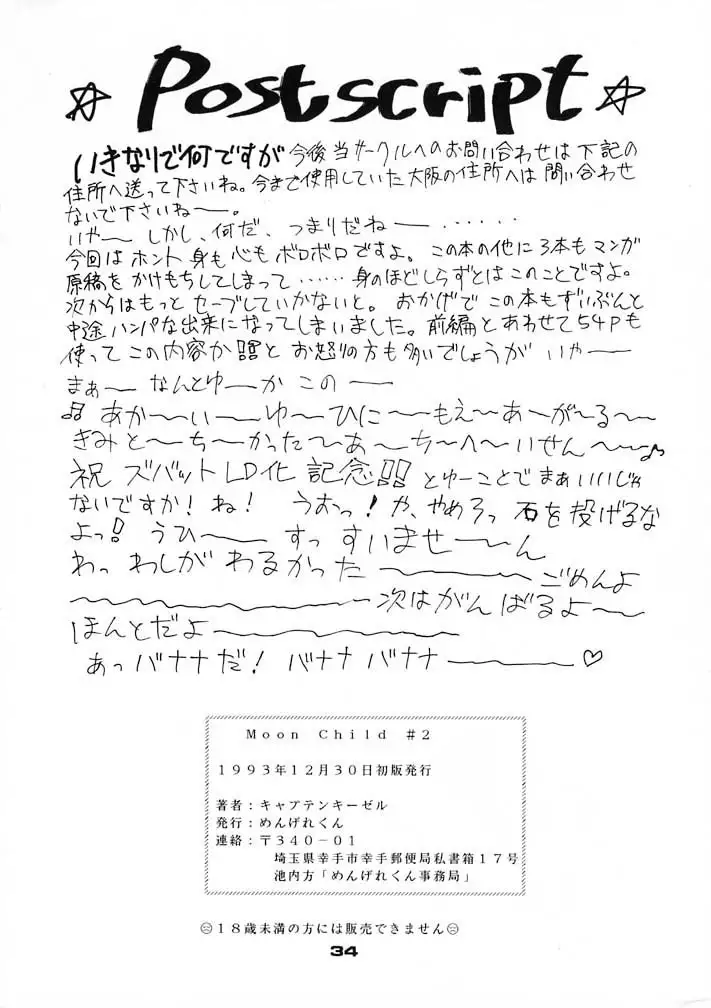 ☆ Postscript ☆
いきなりで何ですが 今後当サークルへのお問い合わせは下記の
住所へ送って下さいね。今まで使用していた大阪の住所へは問い合わせ
ないで下さいね〜。
いや〜 しかし、何だ、つまりだね ー ‥‥‥
今回はホント身も心もボロボロですよ。この本の他に3本もマンガ
原稿をかけもちしてしまって ‥‥‥ 身のほどしらずとはこのことですよ。
次からはもっとセーブしていかないと。おかげでこの本もずいぶんと
中途ハンパな出来になってしまいました。前編とあわせて54Pも
使ってこの内容か!?!!とお怒りの方も多いでしょうが いや──
まぁ〜 なんとゆーか この ──
♫ あか〜〜い──ゆ〜〜ひに〜〜もえ〜あ〜が〜る〜〜
きみと〜ち〜かった〜あ〜ち〜へ〜いせん〜〜♪
祝 ズバットLD化 記念!!とゆーことでまぁいいじゃ
ないですか! ね! うおっ! や、やめろっ 石を投げるな
よっ! うひ〜── すっ すいませ〜──ん
わっ わしが わるかった 〜──── ごめんよ
〜〜〜〜──次はがんばるよ〜〜
ほんとだよ 〜────
あっバナナだ! バナナ バナナ ────♡
Moon Child #2
1993年12月30日初版発行
著者：キャプテンキーゼル
発行：めんげれくん
連絡：〒340-01
埼玉県幸手市幸手郵便局私書箱17号
池内方「めんげれくん事務局」
☹18歳未満の方には販売できません☹
34